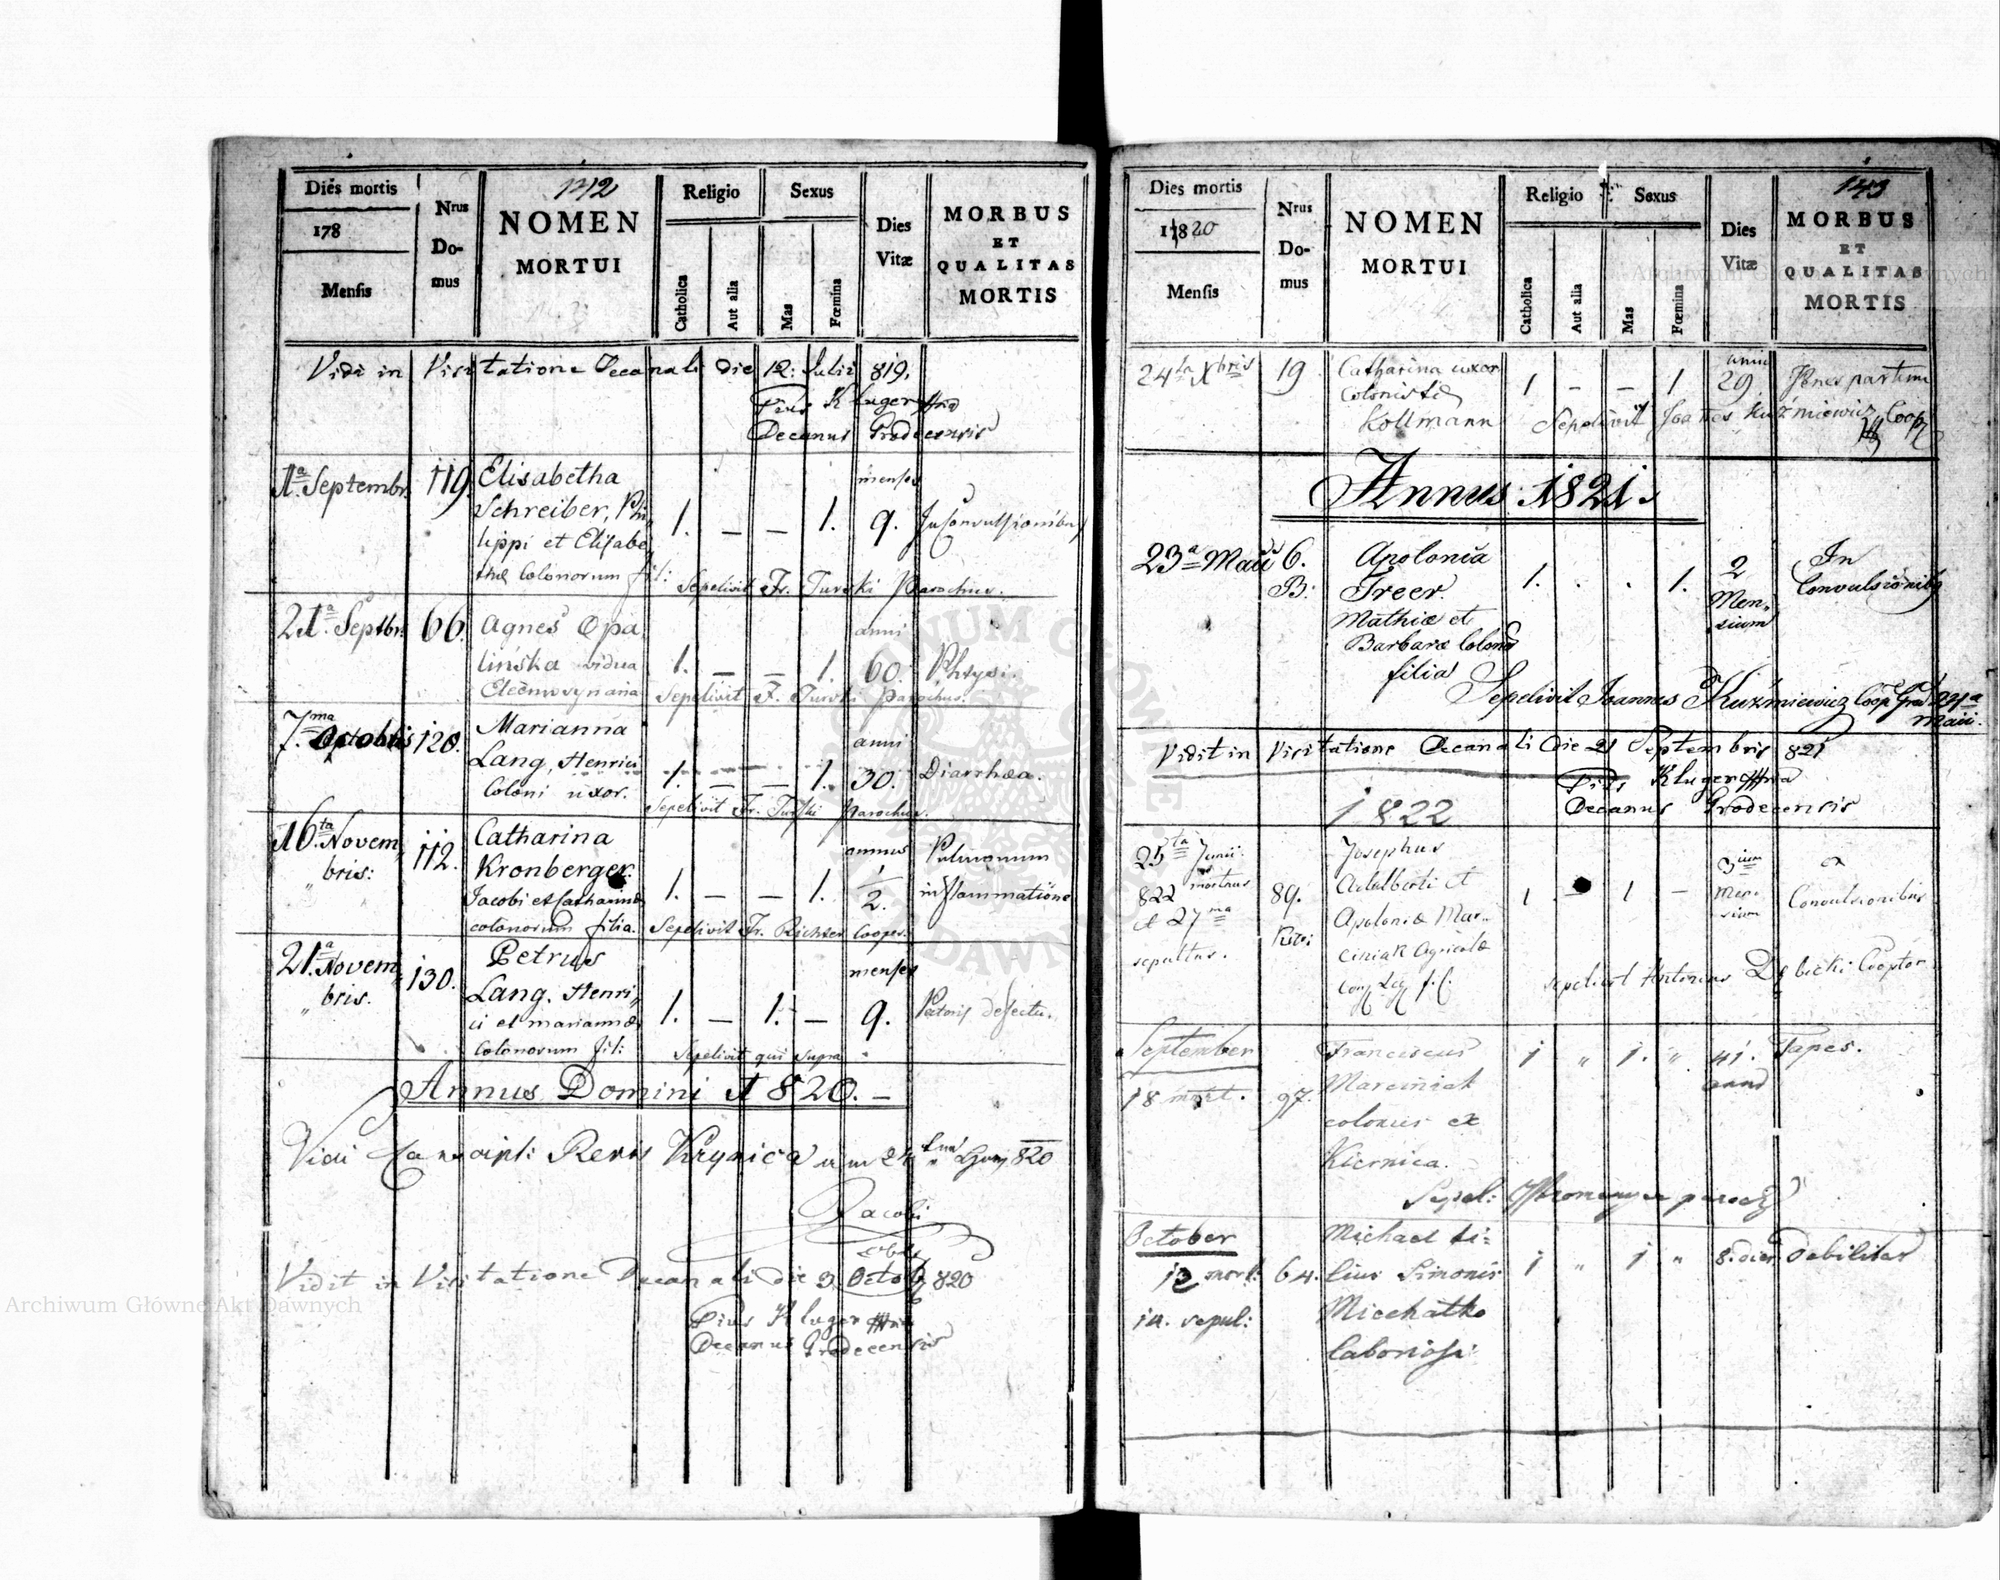 Dies mortis
178
Mensis
Nrus
Do-
mus
142
NOMEN
MORTUI
Religio
Catholica
Aut alia
Sexus
Mas
Fœmina
Dies
Vitæ
MORBUS
ET
QUALITAS
MORTIS
Vidi in Visitatione Decanali die 12: Julii 819.
Pius Kluger
Decanus Grodecensis
1a Septembr. 119. Elisabetha menses
Schreiber, Phi
lippi et Elisabe 1. — — 1. 9. In Convulsionibus
thæ Colonorum fil: Sepelivit Fr. Turski Parochus.
21a Septbr. 66. Agnes Opa anni
linska vidua 1. — — 1. 60. Phtysi.
Eleemosynaria Sepelivit F. Turski Parochus.
7ma Octobris 120. Marianna anni
Lang, Henrici 1. — — 1. 30. Diarrhæa.
Coloni uxor. Sepelivit Fr. Turski Parochus.
16ta Novem 112. Catharina annus Pulmonum
bris: Kronberger. 1. — — 1. 1/2. inflammatione
Jacobi et Catharinæ
colonorum filia. Sepelivit Fr. Richter Cooper:
21a Novem 130. Petrus menses
bris. Lang, Henri 1. — 1. — 9. defectu.
ci et mariannæ
Colonorum fil: Sepelivit qui supra
Annus Domini 1820. —
Vidi Krynica 24 820
Jacobi
Vidit in Visitatione Decanali die 3 Octob 820
Pius Kluger
Decanus Grodecensis
Dies mortis
1820
Mensis
Nrus
Do-
mus
NOMEN
MORTUI
Religio
Catholica
Aut alia
Sexus
Mas
Fœmina
Dies
Vitæ
143
MORBUS
ET
QUALITAS
MORTIS
24ta Xbris 19. Catharina uxor 1 — — 1 anni 29
Colonistæ
Kollmann Sepelivit Joannes Kuźmiewicz Coop
Annus 1821.
23a Maii 6. Apolonia 2 In
B. Freer. 1. . . 1. Men- Convulsionibg
Mathiæ et sium
Barbaræ Colono
filia
Sepelivit Joannes Kuźmiewicz Coop Grod 24ta
Maii.
Vidit in Visitatione Decanali Die 21 Septembris 821
Pius Kluger
Decanus Grodecensis
1822
25ta Junii Josephus 3ium ex
822 mortuus 89. Adalberti et 1 — 1 — Men- Convulsionibus
et 27ma Apoloniæ Mar- sium
sepultus. ciniak Agricolæ
Conj Leg f. l. Sepelivit Antonius Dębicki Cooptor
September Franciscus 1 " 1. " 41. Tapes.
18 mort. 97. Marciniak anno
colonus ex
Kiernica.
Sepel:
October Michael fi- 1 " 1 " 8. dier debilitas
12 mort: 64. lius Simonis
14. sepul: Miechatko
laboriosi
Archiwum Główne Akt Dawnych
Archiwum Główne Akt Dawnych